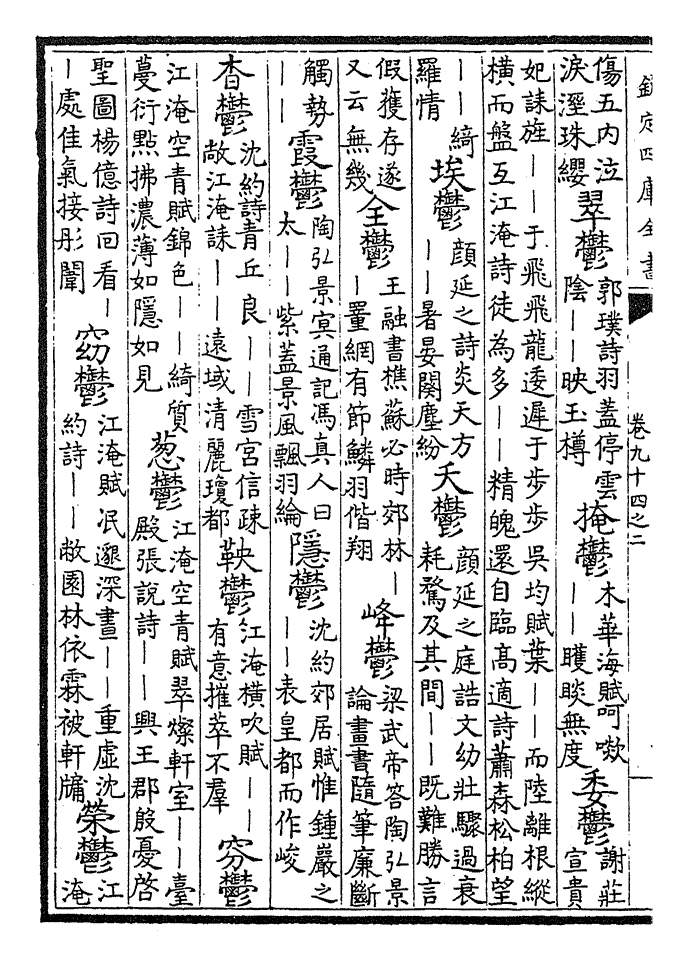 欽定四庫全書
卷九十四之二
傷五內泣
淚溼珠纓
翠鬱
郭璞詩羽蓋停雲
陰——映玉樽
掩鬱
木華海賦呵嗽
——矆睒無度
委鬱
謝莊
宣貴
妃誄旌——于飛飛龍逶遲于步步吳均賦葉——而陸離根縱
橫而盤互江淹詩徒為多——精魄還自臨高適詩蕭森松柏望
——綺
羅情
埃鬱
顔延之詩炎天方
——暑晏闃塵紛
夭鬱
顔延之庭誥文幼壯驟過衰
耗騖及其間——既難勝言
假獲存遂
又云無幾
全鬱
王融書樵蘇必時郊林—
—罿網有節鱗羽偕翔
峰鬱
梁武帝答陶弘景
論畫書隨筆廉斷
觸勢
——
霞鬱
陶弘景冥通記馮真人曰
太——紫蓋景風飄羽綸
隱鬱
沈約郊居賦惟鍾巖之
——表皇都而作峻
杳鬱
沈約詩青丘良——雪宮信疎
敞江淹誄——遠域清麗瓊都
鞅鬱
江淹橫吹賦——
有意摧萃不羣
鬱
江淹空青賦錦色——綺質
蔓衍點拂濃薄如隱如見
葱鬱
江淹空青賦翠燦軒室——臺
殿張說詩——興王郡殷憂啓
聖圖楊億詩回看—
—處佳氣接彤闈
窈鬱
江淹賦泯邈深晝——重虛沈
約詩——敞園林依霖被軒牖
榮鬱
江
淹